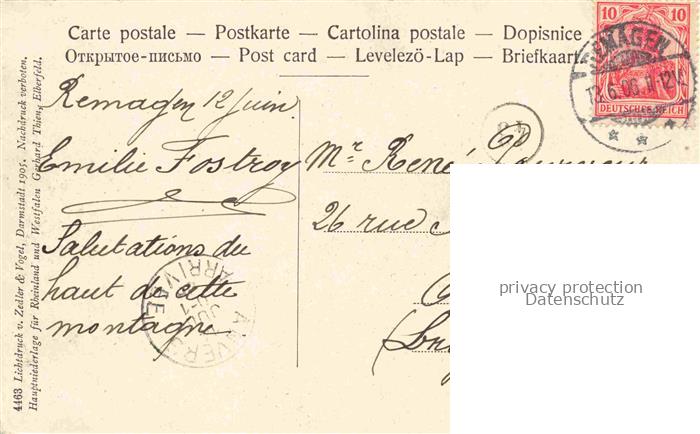 Carte postale — Postkarte — Cartolina postale — Dopisnice
Открытое-письмо — Post card — Levelező-Lap — Briefkaart
10 10
REMAGEN
13.6.06.
DEUTSCHES REICH
48
Remagen 12 juin
Emilie Fostroy
Salutations du
haut de cette
montagne
Mr. René
26 rue
ANVERS
ARRIVÉE
4463 Lichtdruck v. Zedler & Vogel, Darmstadt 1905. Nachdruck verboten.
Hauptniederlage für Rheinland und Westfalen Gerhard Thien, Elberfeld.
privacy protection
Datenschutz